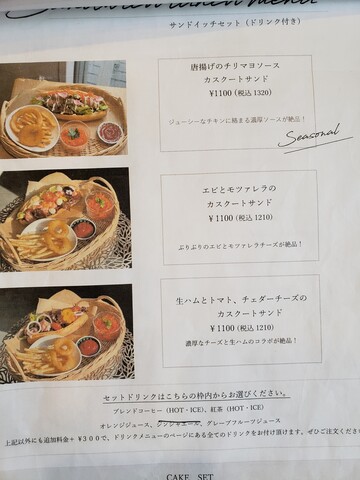 Sandwich lunch menu
サンドイッチセット（ドリンク付き）
唐揚げのチリマヨソース
カスクートサンド
¥1100（税込 1320）
ジューシーなチキンに絡まる濃厚ソースが絶品！
Seasonal
エビとモツァレラの
カスクートサンド
¥1100（税込 1210）
ぷりぷりのエビとモツァレラチーズが絶品！
生ハムとトマト、チェダーチーズの
カスクートサンド
¥1100（税込 1210）
濃厚なチーズと生ハムのコラボが絶品！
セットドリンクはこちらの枠内からお選びください。
ブレンドコーヒー（HOT・ICE）、紅茶（HOT・ICE）
オレンジジュース、ジンジャエール、グレープフルーツジュース
上記以外にも追加料金＋¥300で、ドリンクメニューのページにある全てのドリンクをお付け頂けます。ぜひご注文くださ
CAKE SET